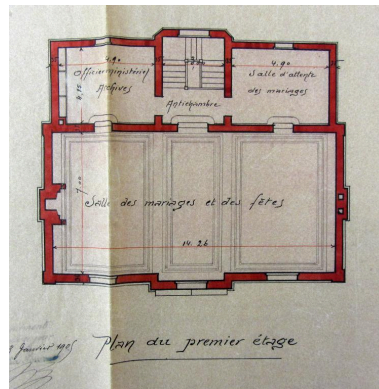 4.90
4.90
Officier ministériel
Archives
Salle d'attente
des mariages
Antichambre
7.00
Salle des mariages et des fêtes
14.26
Janvier 1905
Plan du premier étage